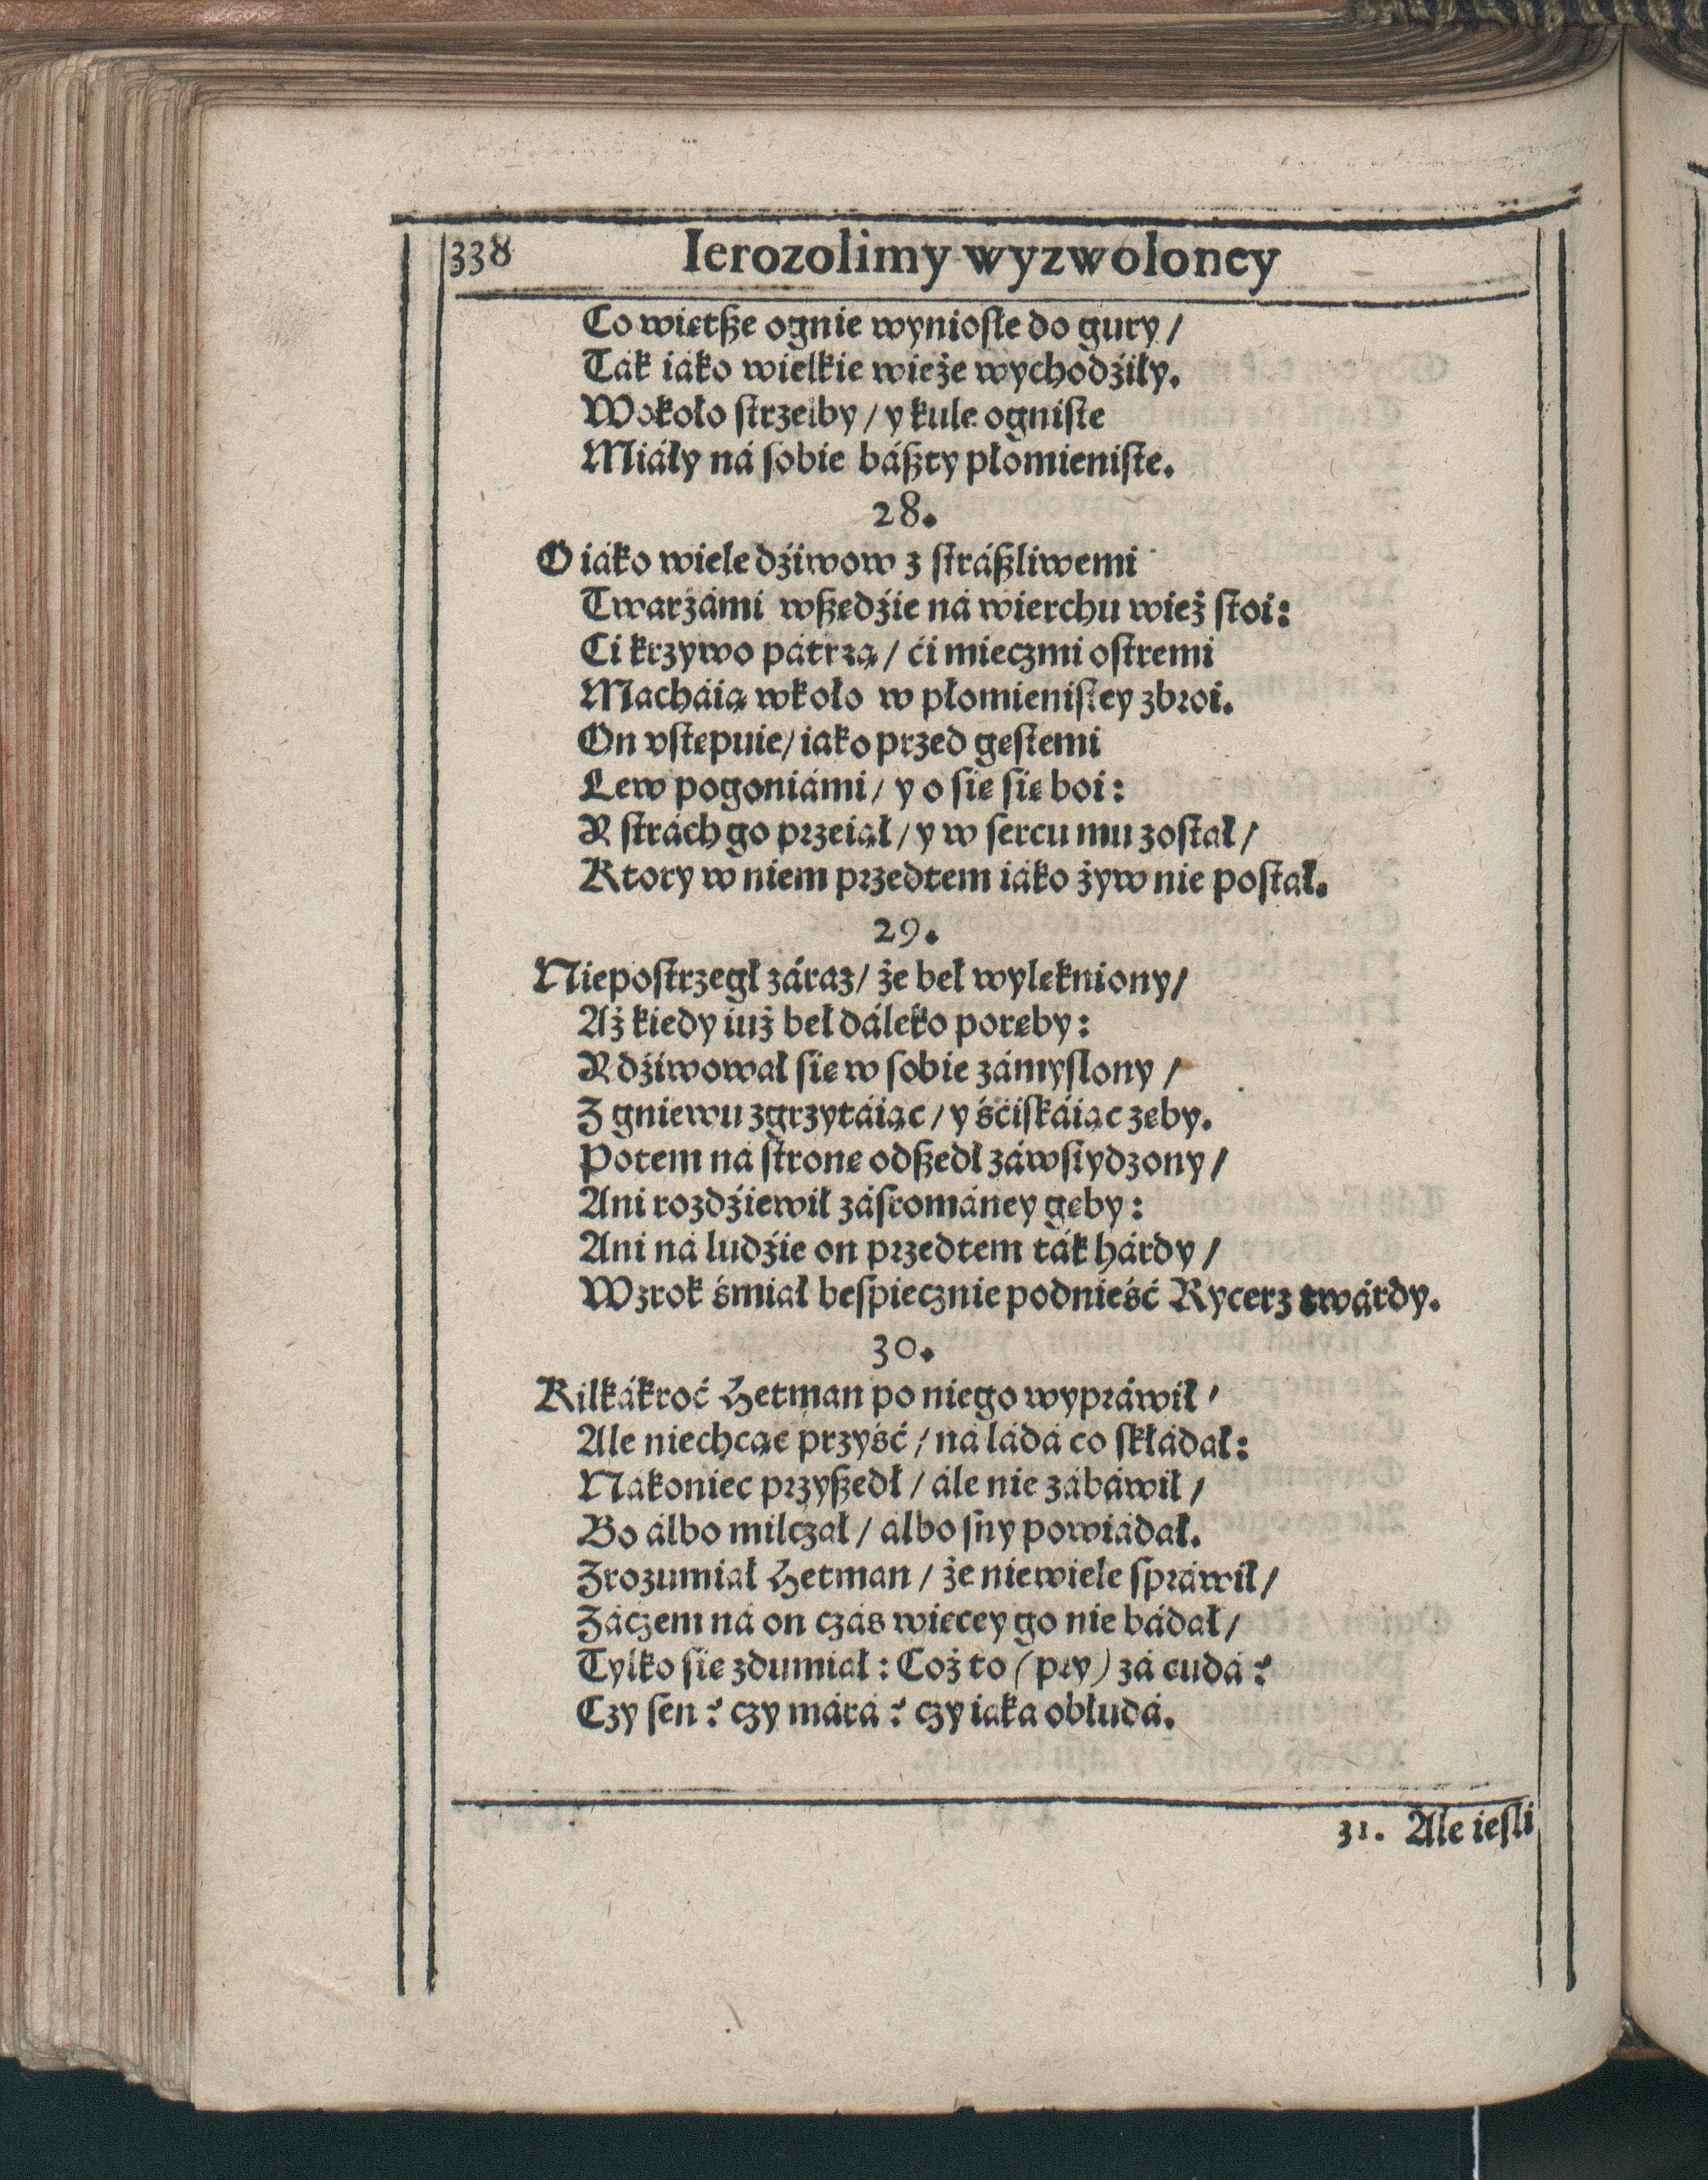 338 Ierozolimy wyzwoloney
Co więtſze ognie wynioſłe do gury /
Ták iáko wielkie wieże wychodźiły.
Wokoło ſtrzelby / y kule ogniſte
Miáły ná ſobie báſzty płomieniſte.
28.
O iáko wiele dźiwow z ſtráſzliwemi
Twarzámi wſzędźie ná wierchu wież ſtoi:
Ci krzywo pátrzą / ći mieczmi oſtremi
Macháią wkoło w płomieniſtey zbroi.
On vſtępuie / iako przed gęſtemi
Lew pogoniámi / y o ſię ſię boi:
Y ſtrách go przeiął / y w ſercu mu zoſtał /
Ktory w niem przedtem iáko żyw nie poſtał.
29.
Niepoſtrzegł záraz / że beł wylękniony /
Aż kiedy iuż beł dáleko poręby:
Y dźiwował ſię w ſobie zámyſlony /
Z gniewu zgrzytáiąc / y śćiſkáiąc zęby.
Potem ná ſtronę odſzedł záwſtydzony /
Ani rozdźiewił záſrománey gęby:
Ani ná ludźie on przedtem ták hárdy /
Wzrok śmiał beſpiecznie podnieść Rycerz twárdy.
30.
Kilkákroć Hetman po niego wypráwił /
Ale niechcąc przyść / ná ládá co ſkłádał:
Nákoniec przyſzedł / ále nie zábáwił /
Bo álbo milczał / álbo ſny powiádał.
Zrozumiał Hetman / że niewiele ſpráwił /
Záczem ná on czás więcey go nie bádał /
Tylko ſię zdumiał: Coż to (pry) zá cudá?
Czy ſen? czy márá? czy iáka obłudá.
31. Ale ieſli